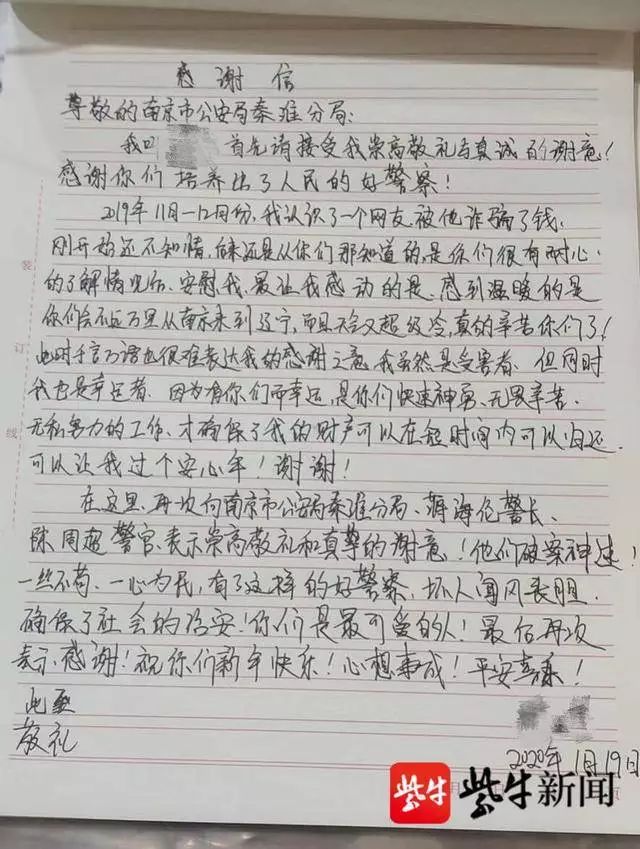 感谢信
尊敬的南京市公安局秦淮分局:
我叫 首先请接受我崇高敬礼与真诚的谢意!
感谢你们培养出了人民的好警察!
2019年11月-12月份,我认识了一个网友被他诈骗了钱,
刚开始还不知情,后来还是从你们那知道的,是你们很有耐心
的了解情况后、安慰我、最让我感动的是、感到温暖的是
你们会不远万里从南京来到辽宁,而且天气又超级冷,真的辛苦你们了!
此时千言万语也很难表达我的感谢之意,我虽然是受害者、但同时
我也是幸运者、因为有你们而幸运,是你们快速神勇、无畏辛苦、
无私努力的工作、才确保了我的财产可以在短时间内可以归还
可以让我过个安心年!谢谢!
在这里、再次向南京市公安局秦淮分局、薛海伦警长、
陈周超警官、表示崇高敬礼和真挚的谢意!他们破案神速!
一丝不苟、一心为民,有了这样的好警察,坏人闻风丧胆、
确保了社会的治安!你们是最可爱的人!最后再次
表示感谢!祝你们新年快乐!心想事成!平安喜乐!
此致
敬礼
2020年1月19日
装
订
线
紫牛 紫牛新闻